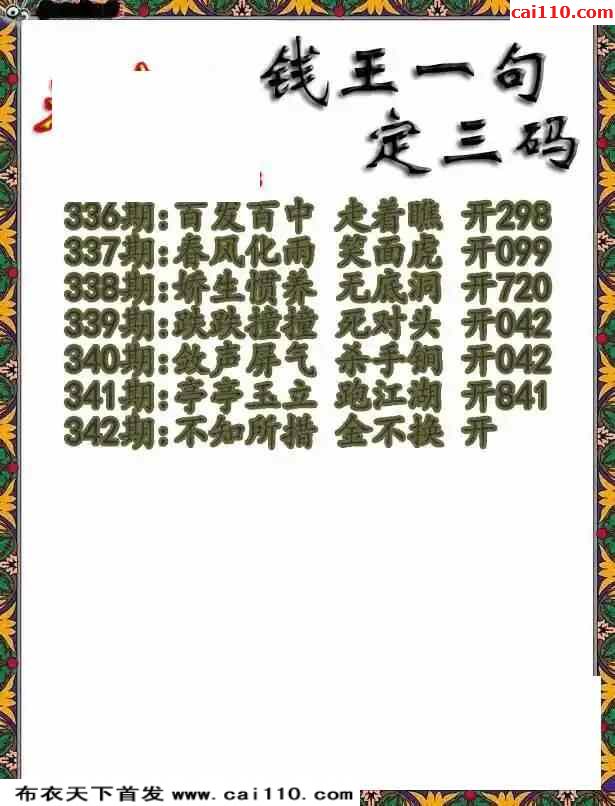 cai110.com
钱王一句
定三码
336期:百发百中 走着瞧 开298
337期:春风化雨 笑面虎 开099
338期:娇生惯养 无底洞 开720
339期:跌跌撞撞 死对头 开042
340期:敛声屏气 杀手锏 开042
341期:亭亭玉立 跑江湖 开841
342期:不知所措 金不换 开
布衣天下首发 www.cai110.com